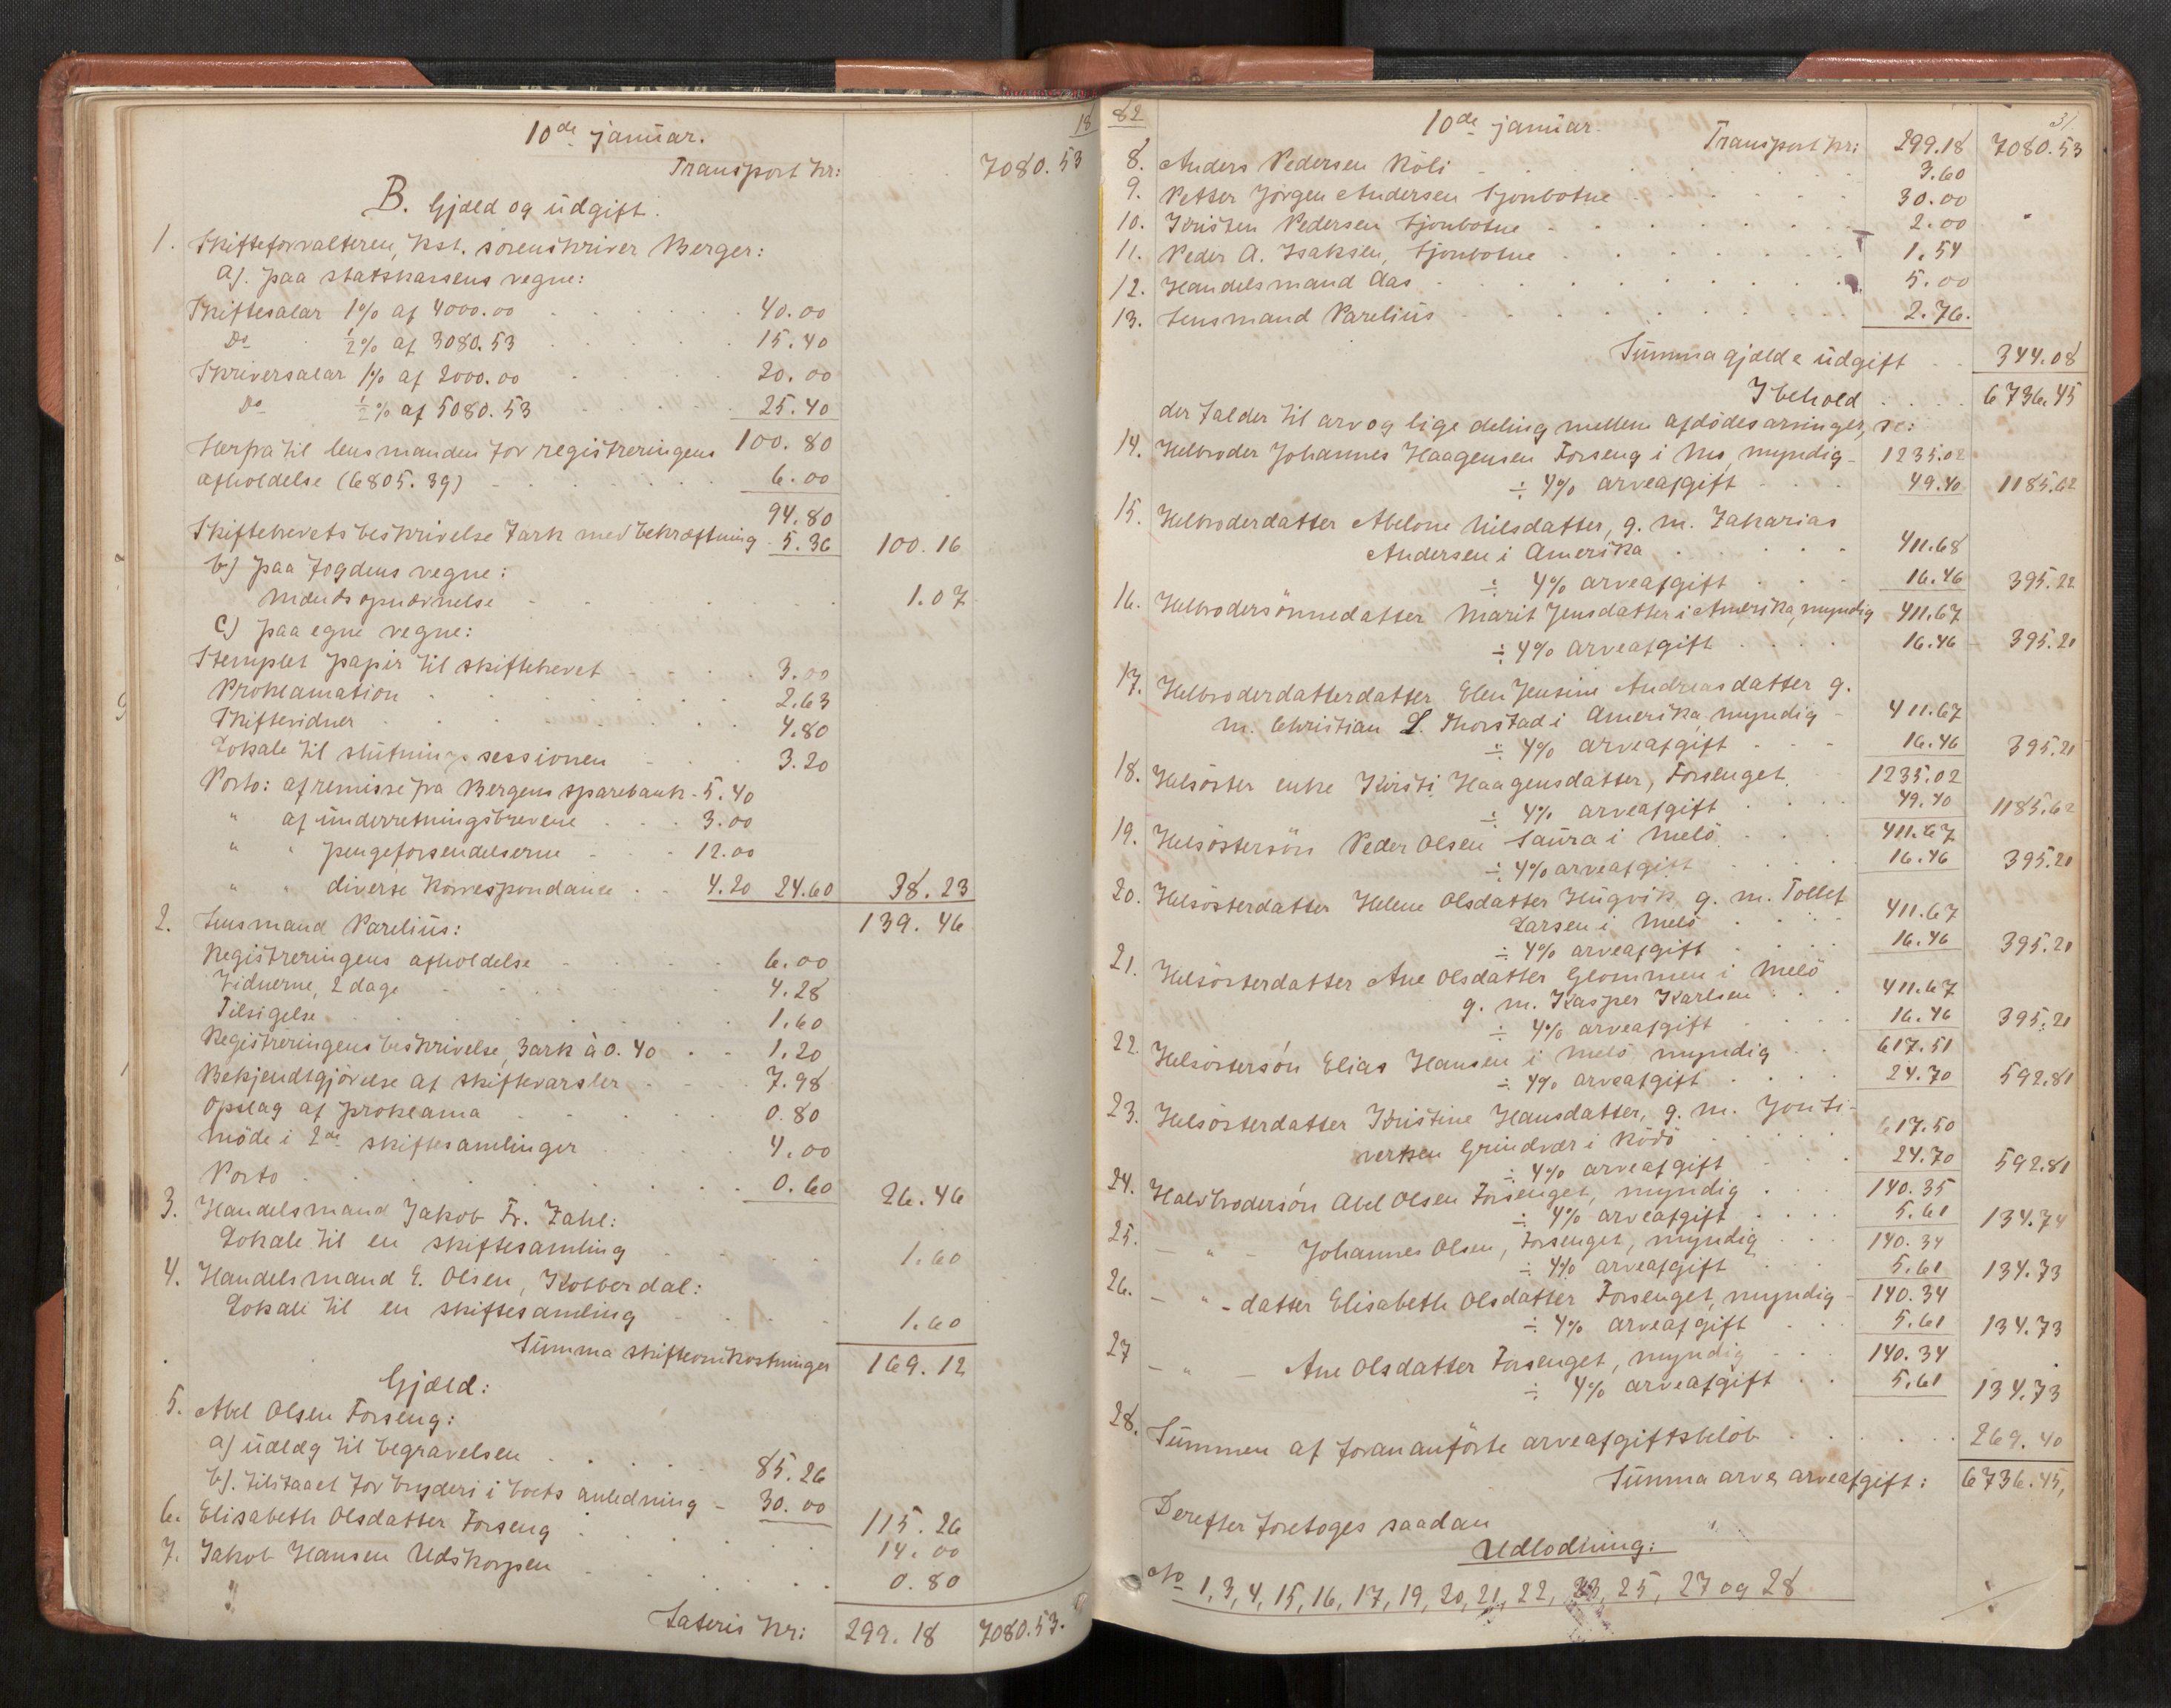 18
10de januar.
Transport kr: 7080.53
B. Gjæld og udgift.
1. Skifteforvalteren, kst. sorenskriver Berger:
a). paa statskassens vegne:
Skiftesalar 1% af 4000.00 40.00
Do ½% af 3080.53 15.40
Skriversalar 1% af 2000.00 20.00
Do ½% af 5080.53 25.40
100.80
Herfra til lensmanden for registreringens
afholdelse (6805.39) 6.00
94.80
Skiftebrevets beskrivelse 7ark med bekræftning 5.36 100.16
b) paa fogdens vegne:
Mændsopnævnelse 1.07
c) paa egne vegne:
Stemplet papir til skiftebrevet 3.00
Proklamation 2.63
Skiftevidner 4.80
Lokale til slutningssessionen 3.20
Porto: af remisse fra Bergens sparebank 5.40
" af underretningsbrevene 3.00
" " pengeforsendelserne 12.00
" " diverse korrespondance 4.20 24.60 38.23
139.46
2. Lensmand Parelius:
Registreringens afholdelse 6.00
Vidnerne, 2 dage 4.28
Tilsigelse 1.60
Registreringens beskrivelse, 3 ark à 0.40 1.20
Bekjendtgjörelse af skiftevarsler 7.98
Opslag af proklama 0.80
Möde i 2de skiftesamlinger 4.00
Porto 0.60 26.46
3. Handelsmand Jakob Fr. Zahl:
Lokale til en skiftesamling 1.60
4. Handelsmand E. Olsen, Kobberdal:
Lokale til en skiftesamling 1.60
Summa skifteomkostninger 169.12
Gjæld:
5. Abel Olsen Forseng:
a) udlæg til begravelsen 85.26
b). tilstaaet for bryderi i boets anledning 30.00 115.26
6. Elisabeth Olsdatter Forseng 14.00
7. Jakob Hansen Udskorpen 0.80
Lateris kr: 299.18 7080.53.
82
10de januar.
31
Transport kr: 299.18 7080.53
8. Anders Pedersen Röli 3.60
9. Petter Jörgen Andersen Sjonbotne 30.00
10. Kristen Pedersen Sjonbotne 2.00
11. Peder A. Isaksen, Sjonbotne 1.54
12. Handelsmand Aas 5.00
13. Lensmand Parelius 2.76.
Summa gjæld & udgift 344.08
I behold 6736.45
der falder til arv og lige deling mellem afdödes arvinger, ɔ:
14. Helbroder Johannes Haagensen Forseng i Mo, myndig 1235.02
÷ 4% arveafgift 49.40 1185.62
15. Helbroderdatter Abelone Nilsdatter, g. m. Zakarias
Andersen i Amerika 411.68
÷ 4% arveafgift 16.46 395.22
16. Helbrodersönnedatter Marit Jensdatter i Amerika, myndig 411.67
÷ 4% arveafgift 16.46 395.21
17. Helbroderdatterdatter Elen Jensine Andreasdatter g.
m. Christian L. Thorstad i Amerika myndig 411.67
÷ 4% arveafgift 16.46 395.21
18. Helsöster enke Kirsti Haagensdatter, Forsenget. 1235.02
÷ 4% arveafgift 49.40 1185.62
19. Helsöstersön Peder Olsen Saura i Melö 411.67
÷ 4% arveafgift 16.46 395.21
20. Helsösterdatter Helene Olsdatter Hugvik g. m. Tollef
Larsen i Melö 411.67
÷ 4% arveafgift 16.46 395.21
21. Helsösterdatter Ane Olsdatter Glommen i Melö
g. m. Kasper Karlsen 411.67
÷ 4% arveafgift 16.46 395.21
22. Helsöstersön Elias Hansen i Melö myndig 617.51
÷ 4% arveafgift 24.70 592.81
23. Helsösterdatter Kristine Hansdatter, g. m. Jon Si-
vertsen Grindvær i Rödö 617.50
÷ 4% arveafgift 24.70 592.81
24. Halvbrodersön Abel Olsen Forsenget, myndig 140.35
÷ 4% arveafgift 5.61 134.74
25. — " — Johannes Olsen, Forsenget, myndig 140.34
÷ 4% arveafgift 5.61 134.73
26. — " - datter Elisabeth Olsdatter Forsenget, myndig 140.34
÷ 4% arveafgift 5.61 134.73
27 — " — Ane Olsdatter Forsenget, myndig 140.34
÷ 4% arveafgift 5.61 134.73
28. Summen af forananförte arveafgiftsbelöb 269.40
Summa arv & arveafgift: 6736.45,
Derefter foretoges saadan
Udlodning:
No 1, 3, 4, 15, 16, 17, 19, 20, 21, 22, 23, 25, 27 og 28